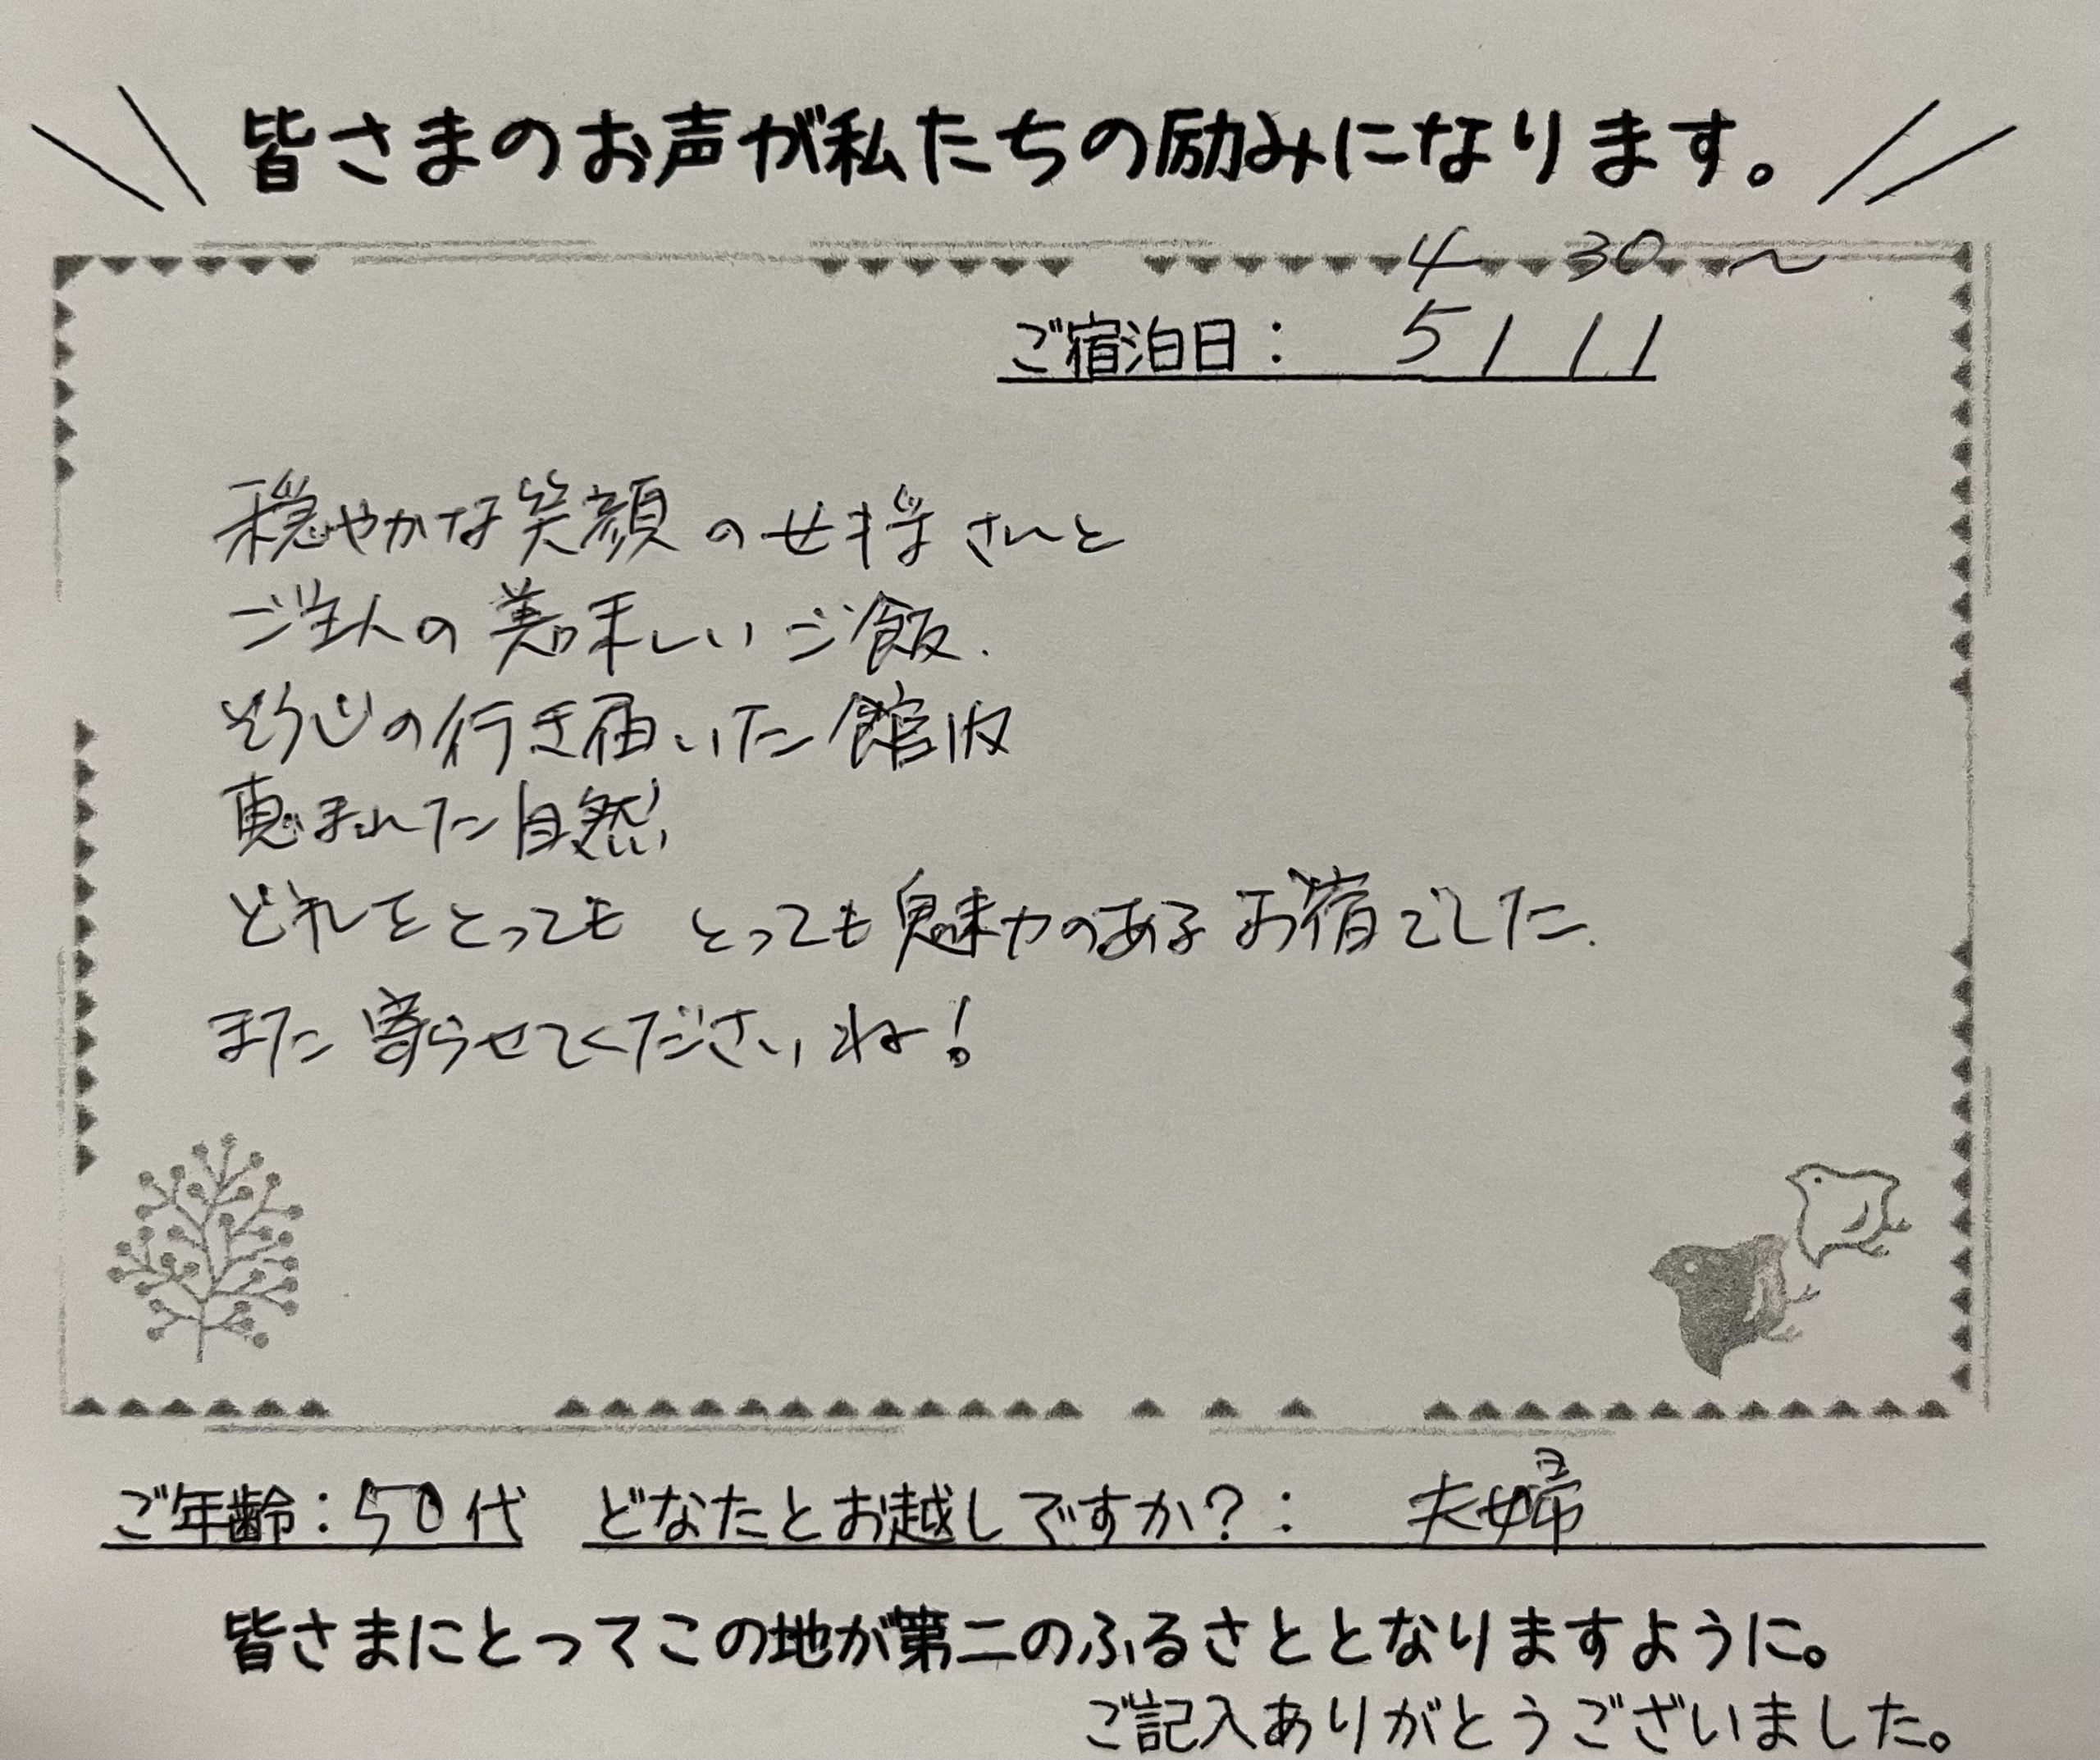 皆さまのお声が私たちの励みになります。
4 30 〜
ご宿泊日： 5/11
穏やかな笑顔の女将さんと
ご主人の美味しいご飯.
そうじの行き届いた館内
恵まれた自然
どれをとっても とっても魅力のあるお宿でした.
また寄らせてくださいね!
ご年齢：50代 どなたとお越しですか？： 夫婦
皆さまにとってこの地が第二のふるさととなりますように。
ご記入ありがとうございました。